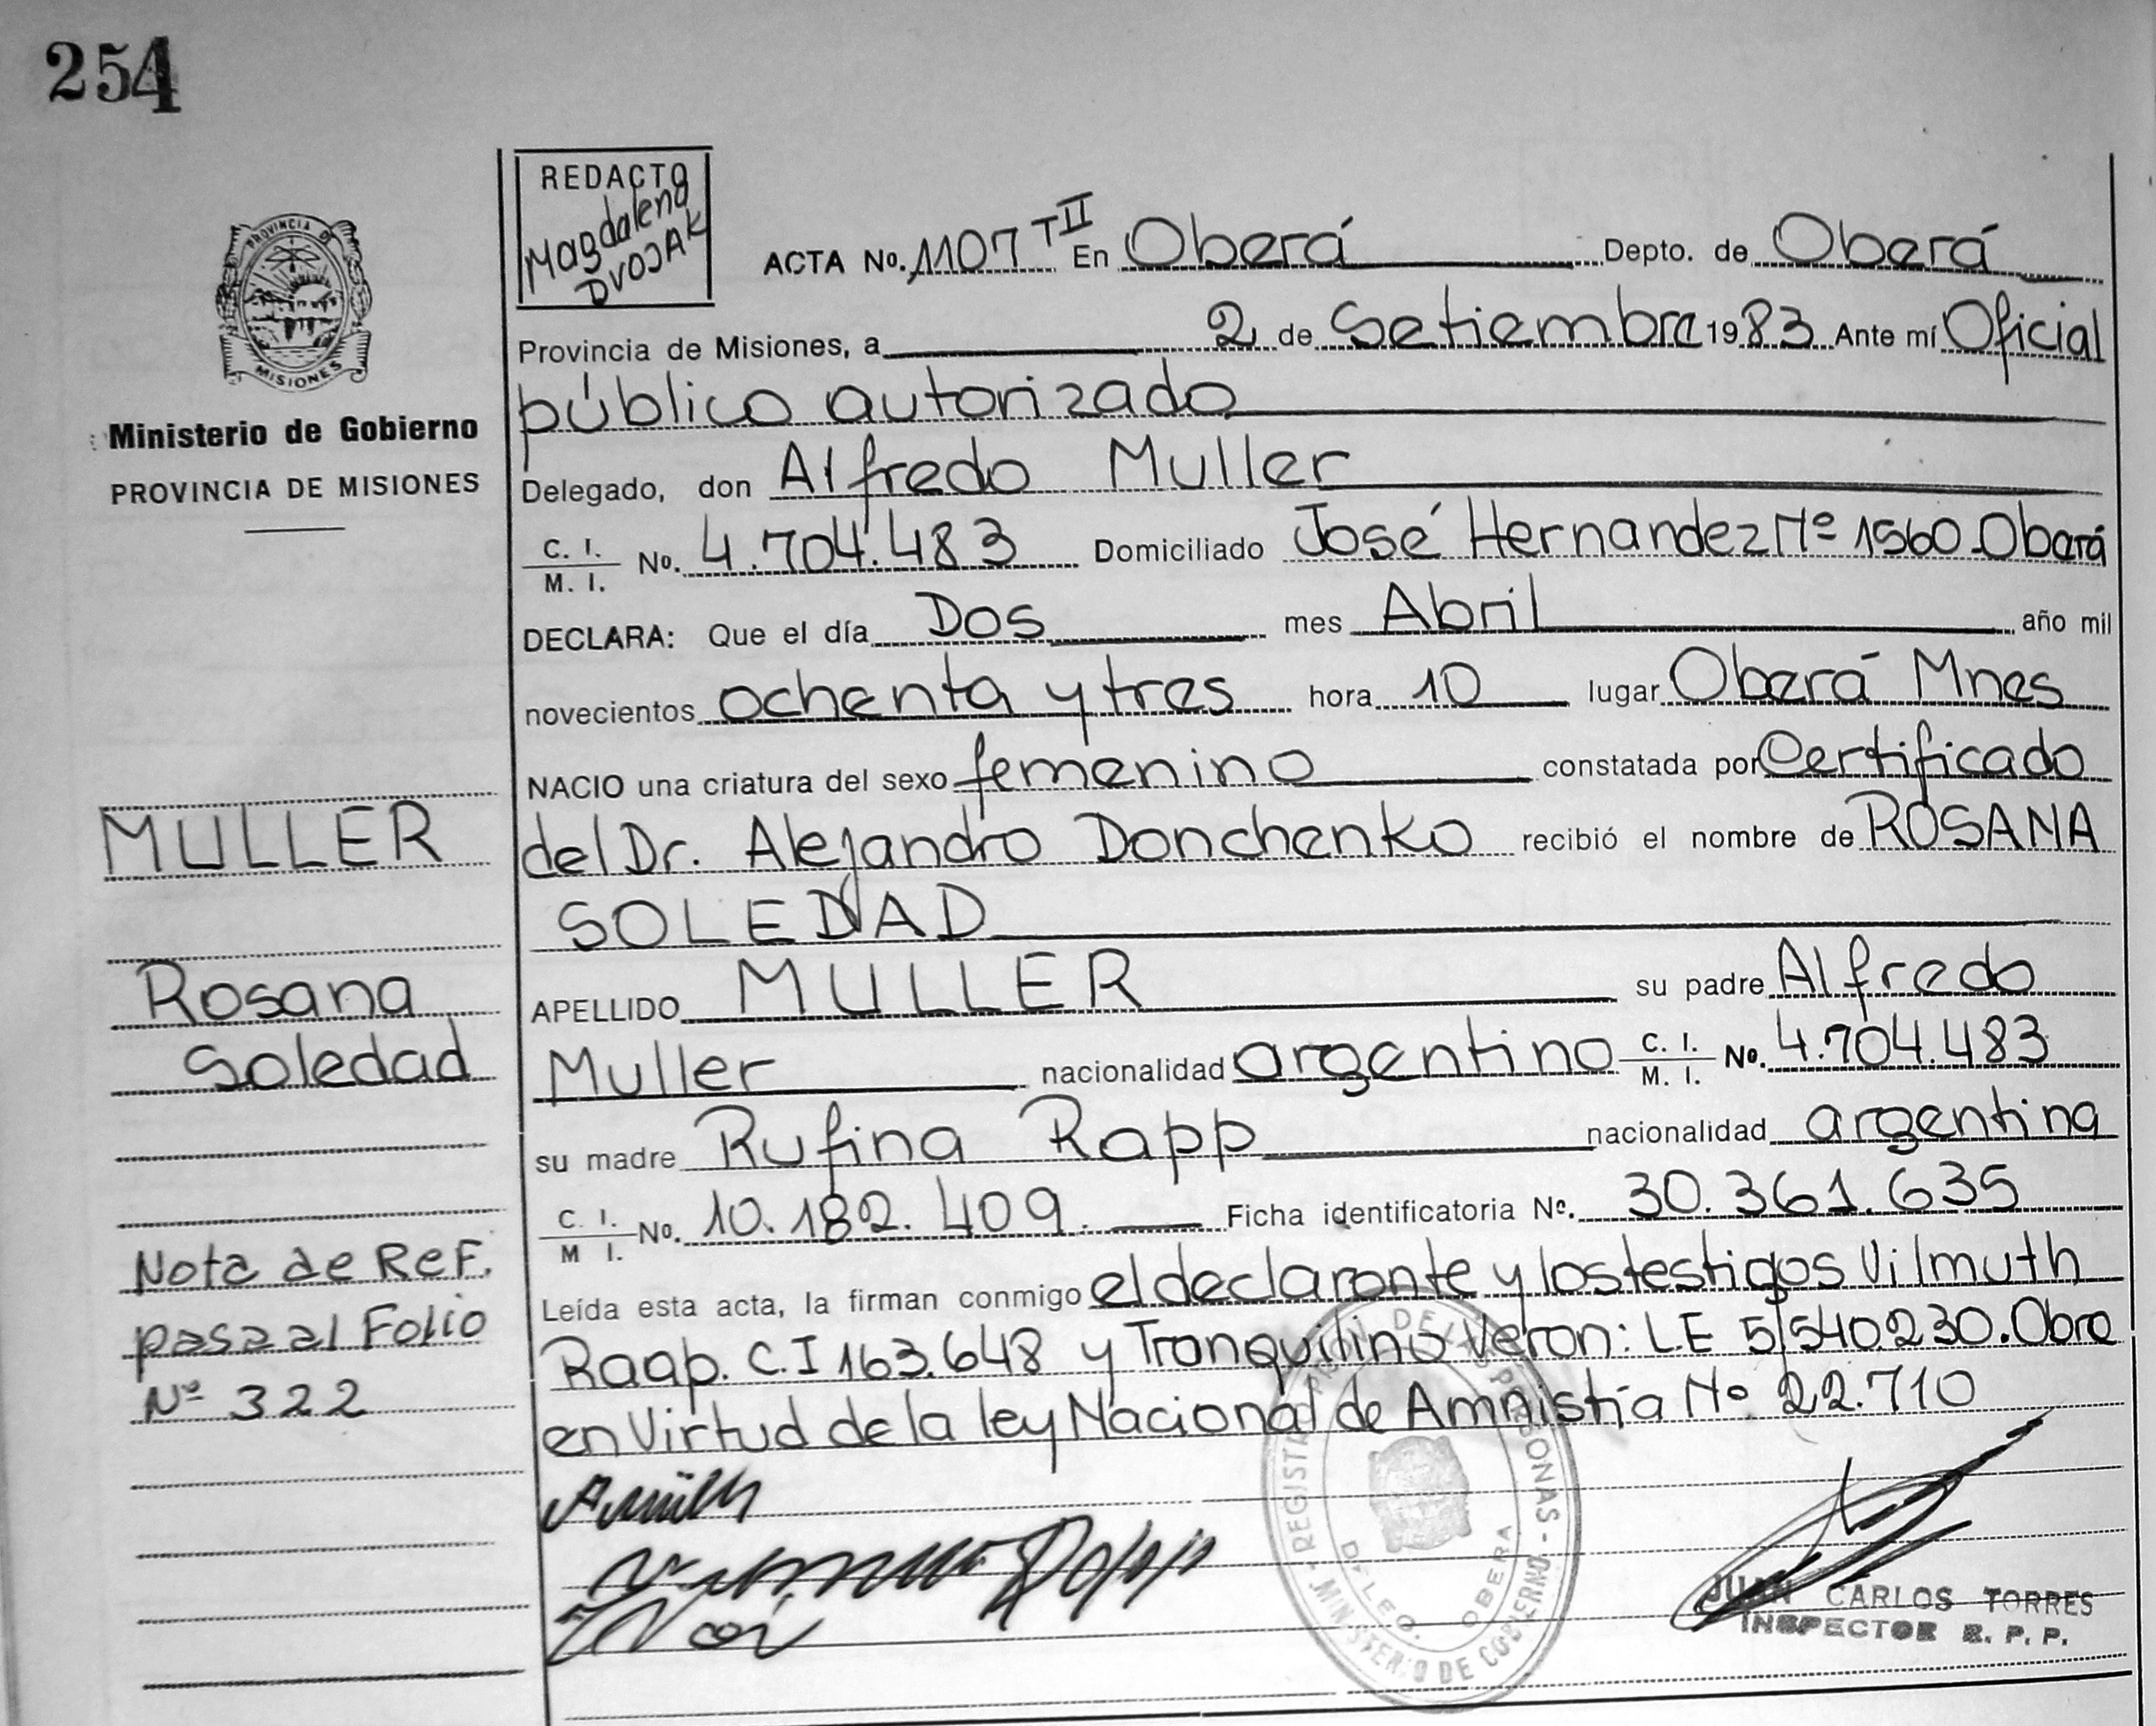 254
REDACTO
Magdalena
DVOJAK
PROVINCIA DE
MISIONES
Ministerio de Gobierno
PROVINCIA DE MISIONES
ACTA No. 1107 T II En Oberá Depto. de Oberá
Provincia de Misiones, a 2 de Setiembre 1983 Ante mí Oficial
público autorizado
Delegado, don Alfredo Muller
C. I. / M. I. No. 4.704.483 Domiciliado José Hernandez Nº 1560 Oberá
DECLARA: Que el día Dos mes Abril año mil
novecientos ochenta y tres hora 10 lugar Oberá Mnes
NACIO una criatura del sexo femenino constatada por Certificado
del Dr. Alejandro Donchenko recibió el nombre de ROSANA
SOLEDAD
APELLIDO MULLER su padre Alfredo
Muller nacionalidad argentino C. I. / M. I. No. 4.704.483
su madre Rufina Rapp nacionalidad argentina
C. I. / M I. No. 10.182.409. Ficha identificatoria Nº. 30.361.635
Leída esta acta, la firman conmigo el declarante y los testigos Vilmuth
Raap. C.I 163.648 y Tranquilino Veron: L.E 5.540.230. Obra
en Virtud de la ley Nacional de Amnistía Nº 22.710
MULLER
Rosana
Soledad
Nota de Ref.
pasa al Folio
Nº 322
REGISTRO PROV. DE LAS PERSONAS - MINISTERIO DE GOBIERNO
DELEG. OBERA
JUAN CARLOS TORRES
INSPECTOR R. P. P.